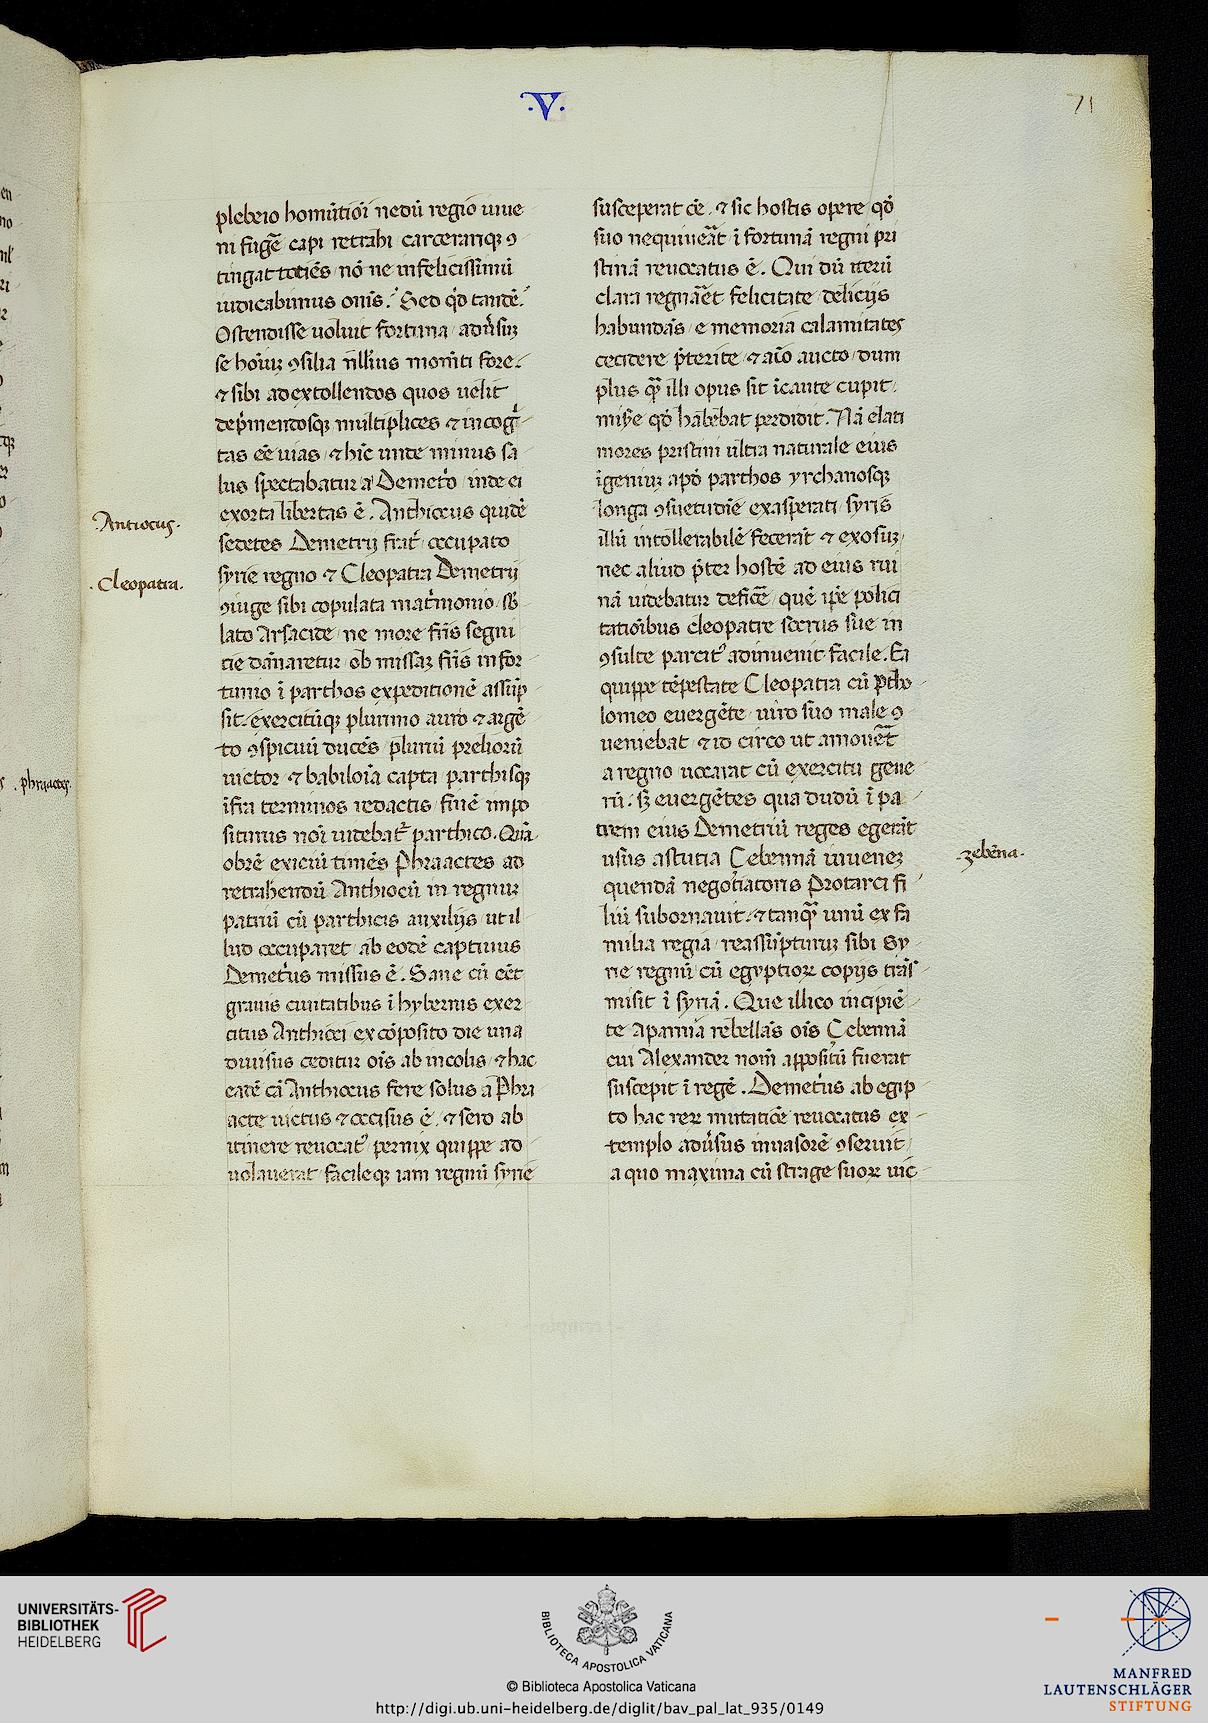 .V.
71
plebeio homūtiōi nedū regio iuue
ni fugē capi retrahi carcerariqꝫ ꝯ
tingat toties nō ne infelicissimū
iudicabimus omīs? Sed qd̄ tandē?
Ostendisse uoluit fortuna adūsuꝫ
se hoīuꝫ ꝯsilia nlliꝰ momēti fore.
⁊ sibi ad extollendos quos uelit
dep̄mendosqꝫ multiplices ⁊ incog
tas eē uias ⁊ hīc unde minus sa
lus spectabatur a Demetͦo inde ei
exorta libertas ē. Anthiocus quidē
sedetes Demetrij frat̄ occupato
syrie regno ⁊ Cleopatra Demetrij
ꝯiuge sibi copulata mat̄monio sb̄
lato Arsacide ne more fr̄is segni
cie dānaretur ob missaꝫ fr̄is infor
tunio ī parthos expeditionē assūp
sit. exercitūqꝫ plurimo auro ⁊ argē
to ꝯspicuū ducēs plurīu preliorū
uictor ⁊ babiloīa capta parthisqꝫ
īfra terminos redactis finē impo
siturus noī uidebat̄ parthico. Quā
obrē exiciū timēs Phraactes ad
retrahendū Anthiocū in regnuꝫ
patriū cū parthicis auxilijs ut il
lud occuparet ab eodē captiuus
Demet̄us missus ē. Sane cū eēt
grauis ciuitatibus ī hybernis exer
citus Anthioci ex cōposito die una
diuisus ceditur oīs ab incolis ⁊ hac
eadē cā Anthiocus fere solus a Phra
acte uictus ⁊ occisus ē ⁊ sero ab
itinere reuocat̄ pernix quippe ad
uolauerat facileqꝫ iam regnū syrie
susceperat cē. ⁊ sic hostis opere qd̄
suo nequiuerat ī fortunā regni pri
stinā reuocatus ē. Qui dū iterū
clara regnaret felicitate delicijs
habundās e memoria calamitates
cecidere p̄terite ⁊ aīo aucto dum
plus qꝫ illi opus sit īcaute cupit
misē qd̄ habebat perdidit. Nā elati
mores pristini ultra naturale eius
īgeniuꝫ apd̄ parthos yrchanosqꝫ
longa ꝯsuetudiē exasperati syris
illū intollerabilē fecerāt ⁊ exosuꝫ
nec aliud p̄ter hostē ad eius rui
nā uidebatur deficē quē ip̄e polici
tatiōibus cleopatre socrus sue in
ꝯsulte parcit̄ adinuenit facile. Ea
quippe tēpestate Cleopatra cū ptho
lomeo euergēte uiro suo male ꝯ
ueniebat ⁊ id circo ut amouēt
a regno uocarat cū exercitu gene
rū. sꝫ euergētes qua dudū ī pa
trem eius Demetriū reges egerāt
usus astutia Cebennā iuueneꝫ
quendā negotiatoris Protarci fi
liū subornauit. ⁊ tanqꝫ unū ex fa
milia regia reassūpturuꝫ sibi Sy
rie regnū cū egyptioꝝ copijs trās
misit ī syriā. Que illico incipiē
te Apamia rebellās oīs Cebennā
cui Alexander nom̄ appositū fuerat
suscepit ī regē. Demet̄us ab egip
to hac reꝝ mutatiōe reuocatus ex
templo adūsus inuasorē ꝯseruit
a quo maxima cū strage suoꝝ uic
Antiocus.
.Cleopatra.
.phraactes.
.zebēna.
UNIVERSITÄTS-
BIBLIOTHEK
HEIDELBERG
BIBLIOTECA APOSTOLICA VATICANA
© Biblioteca Apostolica Vaticana
http://digi.ub.uni-heidelberg.de/diglit/bav_pal_lat_935/0149
MANFRED
LAUTENSCHLÄGER
STIFTUNG